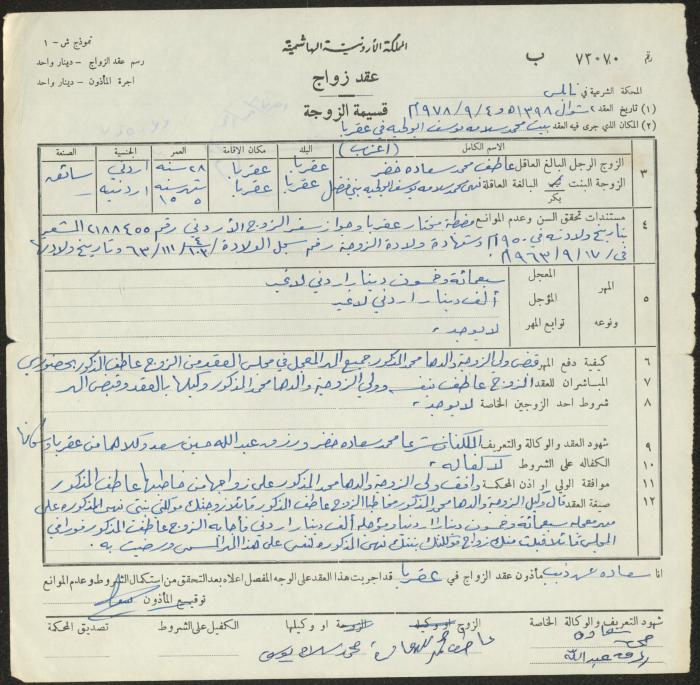 المملكة الأردنية الهاشمية
نموذج ش - ١
رسم عقد الزواج - دينار واحد
اجرة المأذون - دينار واحد
رقم ٧٣٠٧٠ ب
عقد زواج
المحكمة الشرعية في نابلس
قسيمة الزوجة
(١) تاريخ العقد ٢ شوال ١٣٩٨هـ و ٤ / ٩ / ١٩٧٨م
(٢) المكان الذي جرى فيه العقد بيت محمد سلامه يوسف في عقربا
الاسم الكامل (أعزب) البلد مكان الاقامة العمر الجنسية الصنعة
٣ الزوج الرجل البالغ العاقل عاطف محمد سعاده خضر عقربا عقربا ٢٨ سنه اردني
الزوجة البنت البالغة العاقلة محمد سلامه يوسف بني فضل عقربا عقربا ١٥ سنه اردنيه
بكر
٤ مستندات تحقق السن وعدم الموانع مضبطة مختار عقربا وجواز سفر الزوج الأردني رقم ٢١٨٨٤٥٥ الشعر
بتاريخ ولادته في ١٩٥٠م وشهادة ولادة الزوجة رقم سجل الولادة ٦٣/١١١ وتاريخ ولادتها
في ١٧ / ٩ / ١٩٦٣م
٥ المهر ونوعه
المعجل سبعمائة وخمسون دينار اردني لا غير
المؤجل ألف دينار اردني لا غير
توابع المهر لا يوجد
٦ كيفية دفع المهر قبض ولي الزوجة والدها محمد المذكور جميع المهر المعجل في مجلس العقد من الزوج عاطف المذكور بحضوري
٧ المباشران للعقد الزوج عاطف نفسه وولي الزوجة والدها محمد المذكور وكيلها بالعقد وقبض المهر
٨ شروط احد الزوجين الخاصة لا يوجد
٩ شهود العقد والوكالة والتعريف المكلفان شرعا محمد سعاده خضر ورزق عبد الله حسين سعد وكلاهما من عقربا وسكانها
١٠ الكفالة على الشروط لا كفاله
١١ موافقة الولي او اذن المحكمة وافق ولي الزوجة والدها محمد المذكور على زواجها من خاطبها عاطف المذكور
١٢ صيغة العقد قال وكيل الزوجة والدها محمد المذكور مخاطبا الزوج عاطف المذكور قائلا زوجتك موكلتي بنتي المذكوره على
مهر معجله سبعمائة وخمسون دينارا اردنيا ومؤجله ألف دينار اردني فأجابه الزوج عاطف المذكور فورا في
المجلس قائلا قبلت منك زواج موكلتك بنتك المذكوره لنفسي على هذا المهر المسمى ورضيت به
انا سعاده مأذون عقد الزواج في عقربا قد اجريت هذا العقد على الوجه المفصل اعلاه بعد التحقق من استكمال الشروط وعدم الموانع
توقيع المأذون
شهود التعريف والوكالة الخاصة الزوج او وكيله الزوجة او وكيلها الكفيل على الشروط تصديق المحكمة
محمد سعاده
رزق عبد الله
عاطف محمد سعاده
محمد سلامه يوسف